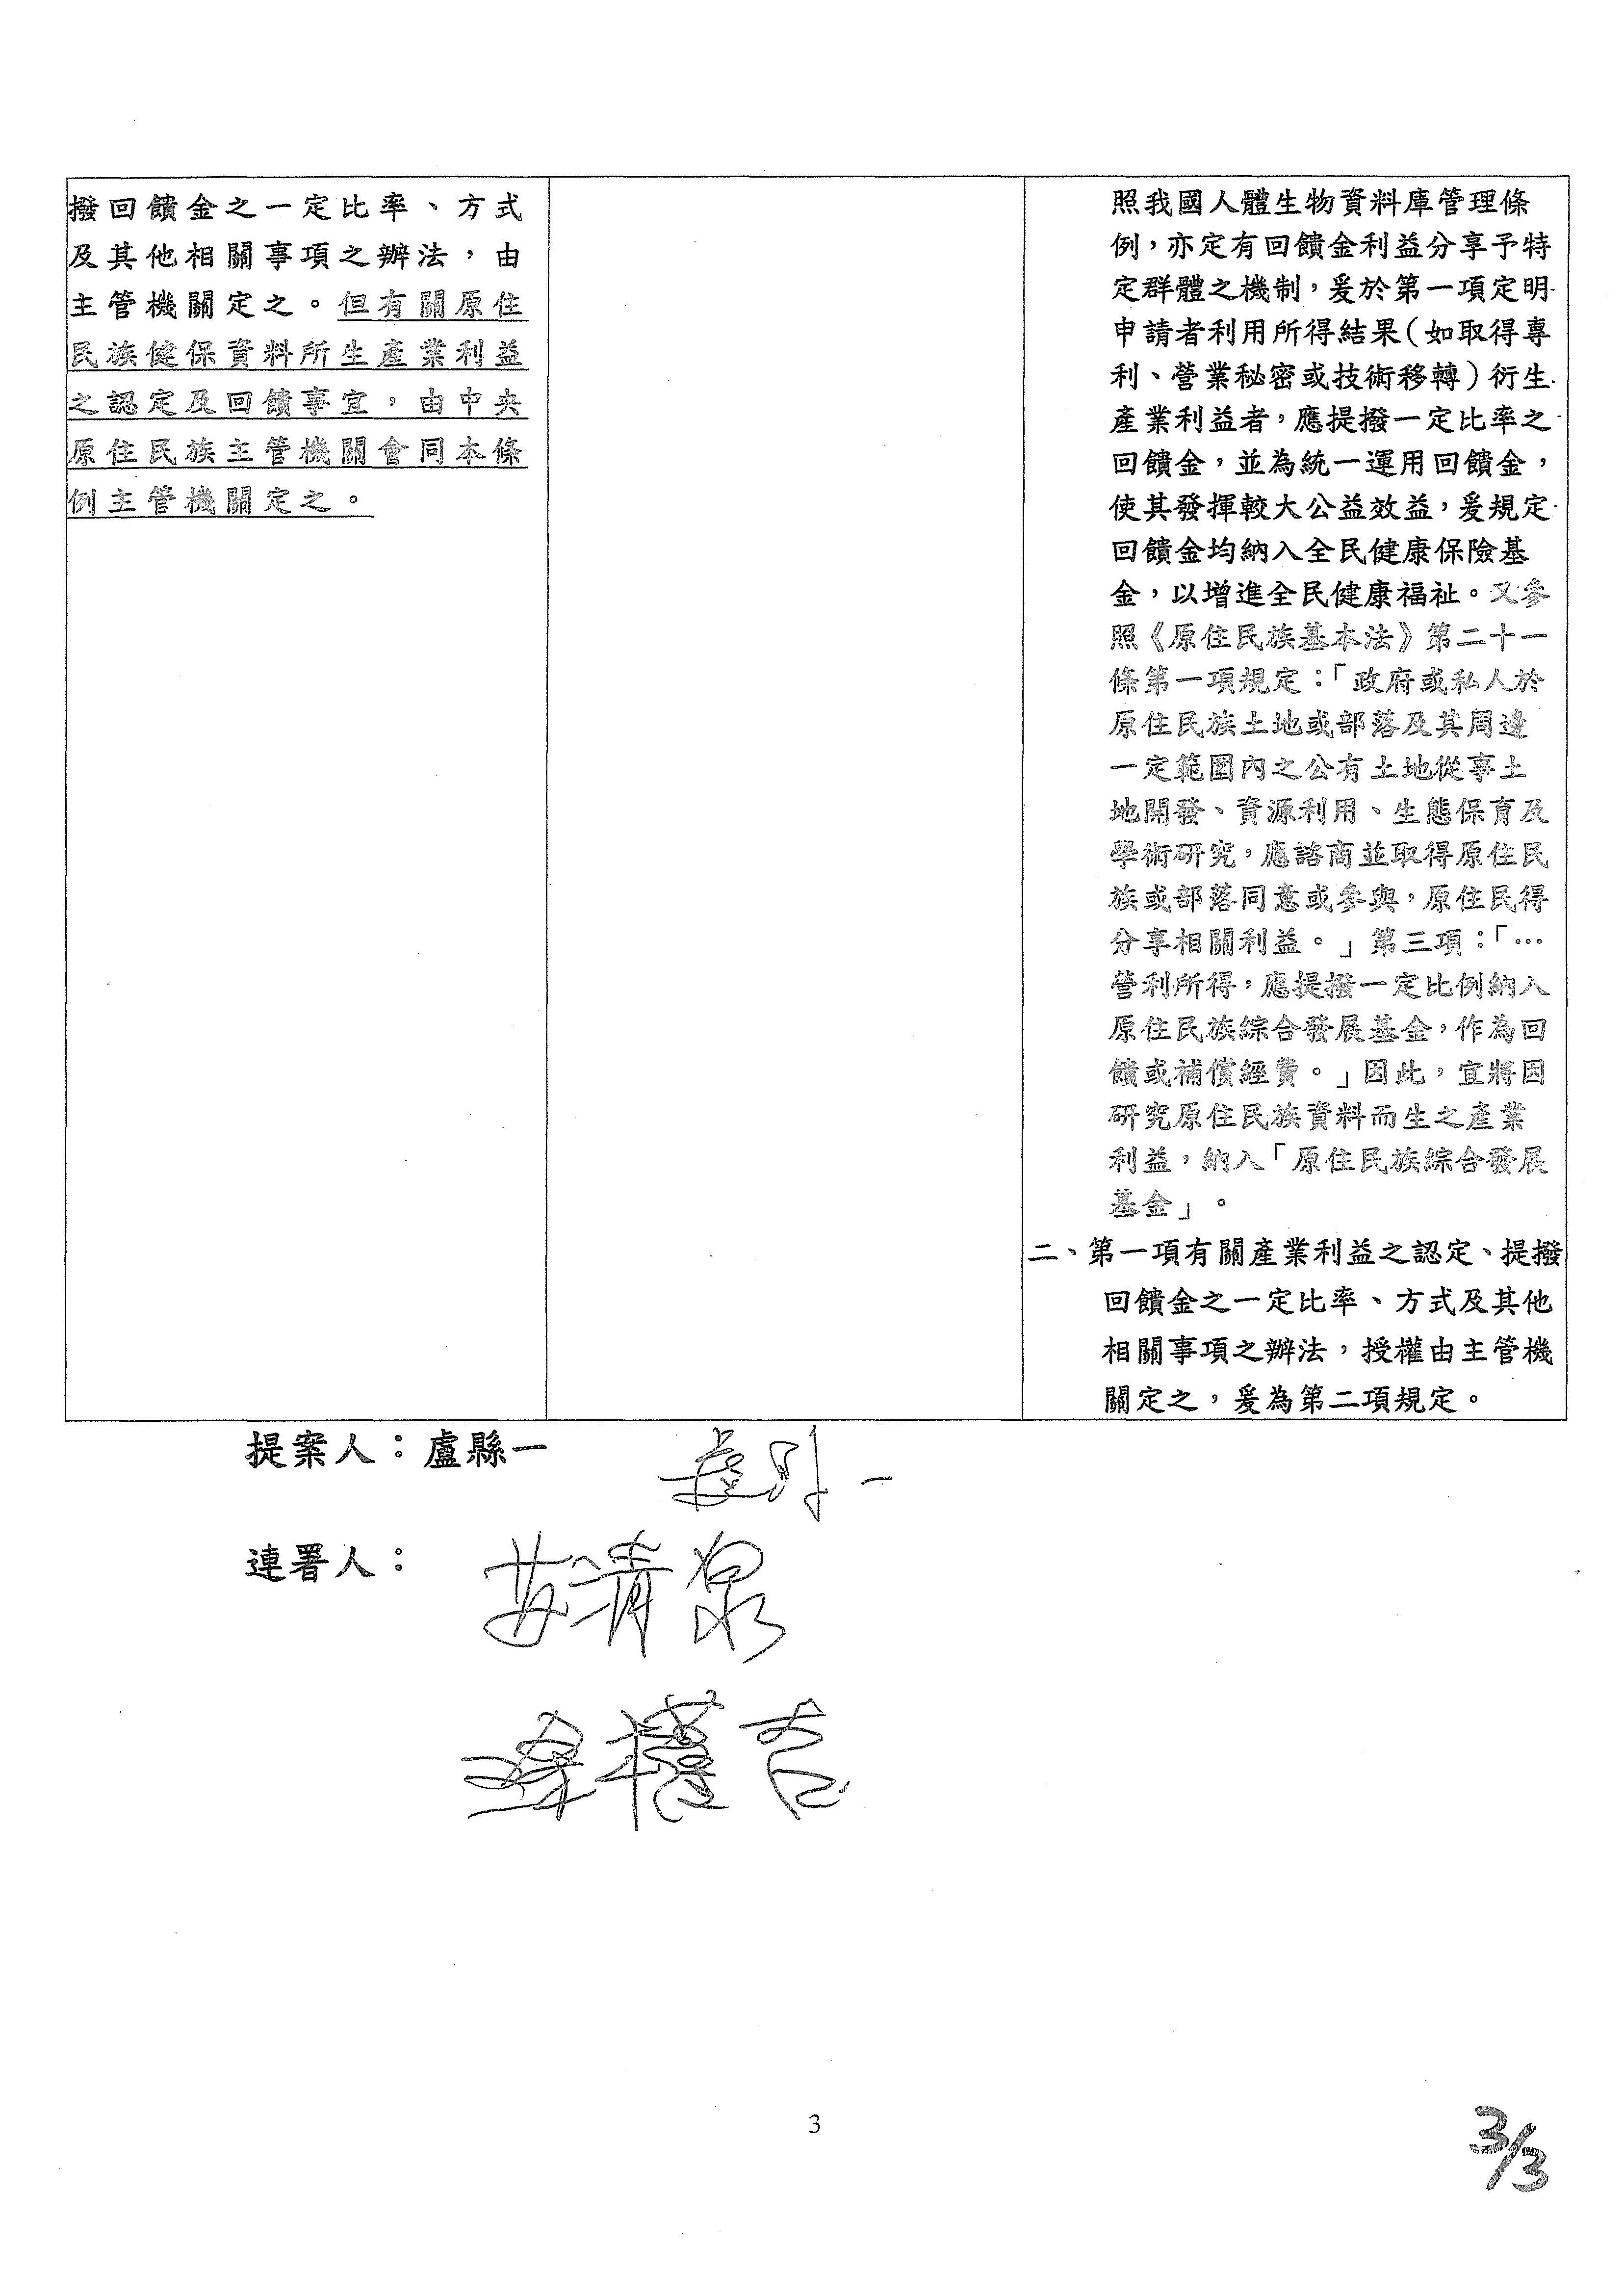 撥回饋金之一定比率、方式
及其他相關事項之辦法，由
主管機關定之。但有關原住
民族健保資料所生產業利益
之認定及回饋事宜，由中央
原住民族主管機關會同本條
例主管機關定之。
照我國人體生物資料庫管理條
例，亦定有回饋金利益分享予特
定群體之機制，爰於第一項定明
申請者利用所得結果（如取得專
利、營業秘密或技術移轉）衍生
產業利益者，應提撥一定比率之
回饋金，並為統一運用回饋金，
使其發揮較大公益效益，爰規定
回饋金均納入全民健康保險基
金，以增進全民健康福祉。又參
照《原住民族基本法》第二十一
條第一項規定：「政府或私人於
原住民族土地或部落及其周邊
一定範圍內之公有土地從事土
地開發、資源利用、生態保育及
學術研究，應諮商並取得原住民
族或部落同意或參與，原住民得
分享相關利益。」第三項：「…
營利所得，應提撥一定比例納入
原住民族綜合發展基金，作為回
饋或補償經費。」因此，宜將因
研究原住民族資料而生之產業
利益，納入「原住民族綜合發展
基金」。
二、第一項有關產業利益之認定、提撥
回饋金之一定比率、方式及其他
相關事項之辦法，授權由主管機
關定之，爰為第二項規定。
提案人：盧縣一
盧縣一
連署人：
蘇清泉
3
3/3